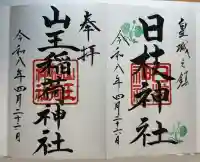 皇城之鎮
日枝神社
令和八年四月二十六日
奉拝
山王稲荷神社
令和八年四月二十六日